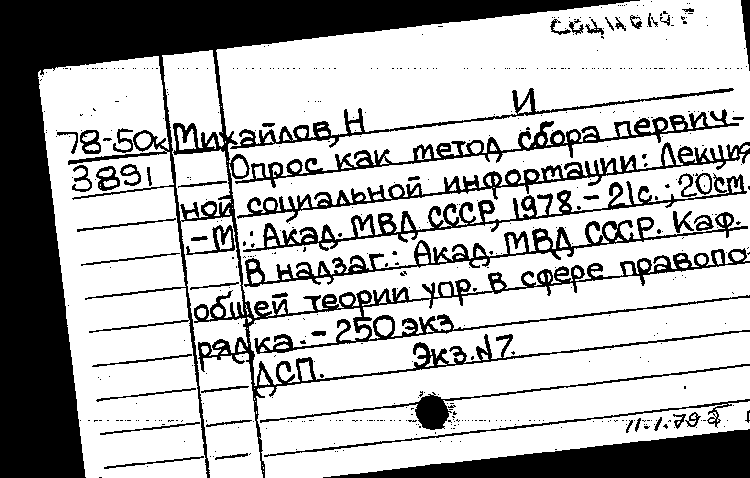 социолог
78-50к Михайлов, Н И
3891 Опрос как метод сбора первич-
ной социальной информации: Лекция
.-М.: Акад. МВД СССР, 1978.-21с.; 20см.
В надзаг.: Акад. МВД СССР. Каф.
общей теории упр. в сфере правопо
рядка.-250экз.
ДСП. Экз.N7.
11.1.79